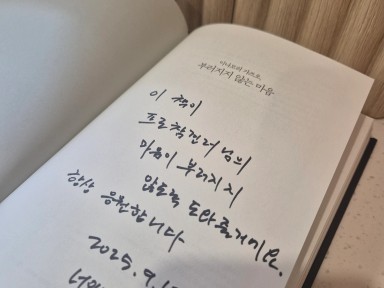 부러지지 않는 마음
이 책이
프로참견러님의
마음이 부러지지
않도록 도와줄거예요.
항상 응원합니다
2025. 9. 1